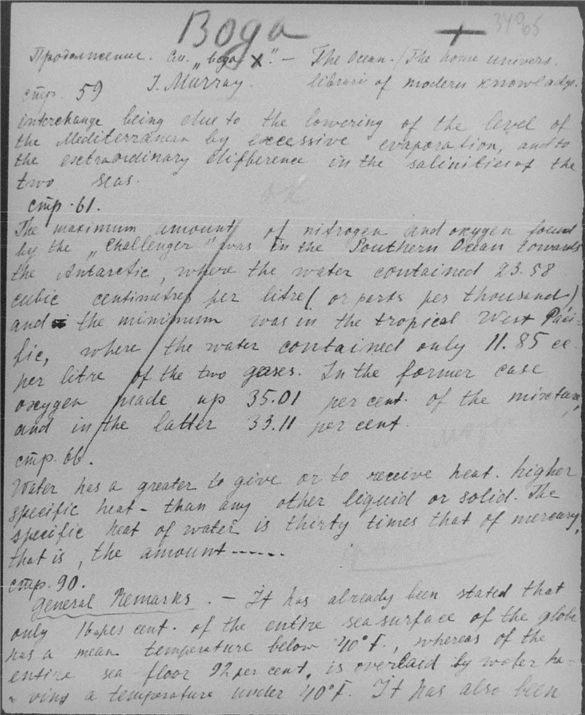 Вода
Продолжение. См. „вода X". – The Ocean. / The home univers.
стр. 59 J. Murray. librari of modern knowladge.
interchange being due to the lowering of the level of
the Mediterranean by excessive evaporation, and to
the extraordinary difference in the salinities of the
two seas.
стр. 61.
The maximum amount of nitrogen and oxygen found
by the „Challenger" was in the Southern Ocean towards
the Antarctic, where the water contained 23.58
cubic centimetres per litre (or parts per thousand)
and the minimum was in the tropical West Paci-
fic, where the water contained only 11.85 cc.
per litre of the two gases. In the former case
oxygen made up 35.01 per cent. of the mixture,
and in the latter 33.11 per cent.
стр. 66.
Water has a greater to give or to receive heat. higher
specific heat – than any other liquid or solid. The
specific heat of water is thirty times that of mercury,
that is, the amount ------
стр. 90.
General Remarks. – It has already been stated that
only 16 per cent. of the entire sea surface of the globe
has a mean temperature below 40°F., whereas of the
entire sea floor 92 per cent. is overlaid by water ha-
ving a temperature under 40°F. It has also been